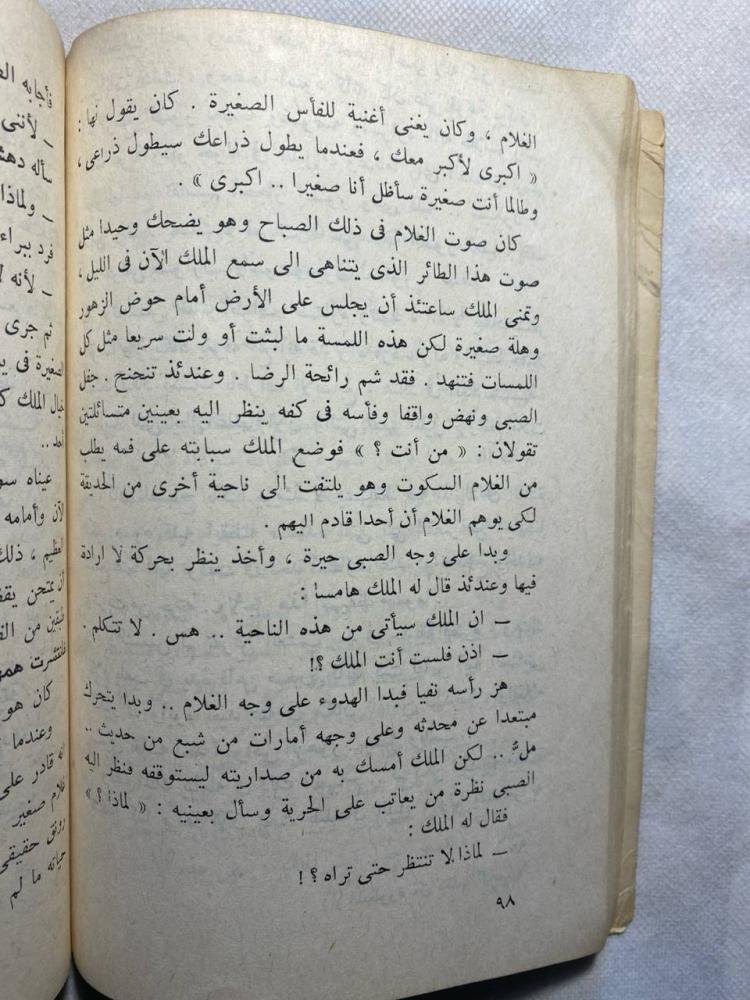 الغلام ، وكان يغنى أغنية للفأس الصغيرة . كان يقول لها :
« اكبرى لأكبر معك ، فعندما يطول ذراعك سيطول ذراعى ،
وطالما أنت صغيرة سأظل أنا صغيرا .. اكبرى » .
كان صوت الغلام فى ذلك الصباح وهو يضحك وحيدا مثل
صوت هذا الطائر الذى يتناهى الى سمع الملك الآن فى الليل ،
وتمنى الملك ساعتئذ أن يجلس على الأرض أمام حوض الزهور
وهلة صغيرة لكن هذه اللمسة ما لبثت أو ولت سريعا مثل كل
اللمسات فتنهد . فقد شم رائحة الرضا . وعندئذ تنحنح . جفل
الصبى ونهض واقفا وفأسه فى كفه ينظر اليه بعينين متسائلتين
تقولان : « من أنت ؟ » فوضع الملك سبابته على فمه يطلب
من الغلام السكوت وهو يلتفت الى ناحية أخرى من الحديقة
لكى يوهم الغلام أن أحدا قادم اليهم .
وبدا على وجه الصبى حيرة ، وأخذ ينظر بحركة لا ارادة
فيها وعندئذ قال له الملك هامسا :
— ان الملك سيأتى من هذه الناحية .. هس . لا تتكلم .
— اذن فلست أنت الملك ؟!
هز رأسه نفيا فبدا الهدوء على وجه الغلام .. وبدا يتحرك
مبتعدا عن محدثه وعلى وجهه أمارات من شبع من حديث ..
ملّ .. لكن الملك أمسك به من صداريته ليستوقفه فنظر اليه
الصبى نظرة من يعاتب على الحرية وسأل بعينيه : « لماذا ؟ »
فقال له الملك :
— لماذا لا تنتظر حتى تراه ؟ !
٩٨
فأجابه
— لأننى
سأله
— ولماذا
فرد
— لأنه
ثم جرى
الصغيرة فى
الملك
عيناه
وأمامه
ذلك
من
كان هو
وعندما
قادر على
صغير
حقيقى
ما لم